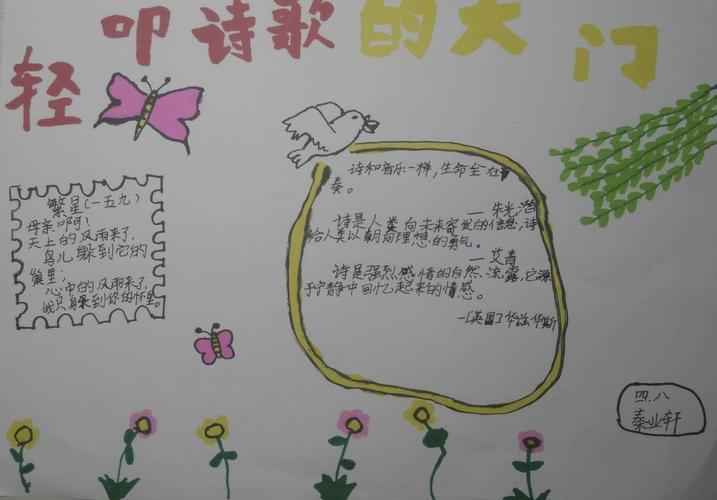 轻叩诗歌的大门
繁星(一五九)
母亲啊!
天上的风雨来了,
鸟儿躲到它的
巢里;
心中的风雨来了,
我只躲到你的怀里。
诗和音乐一样,生命全在节
奏。
——朱光潜
诗是人类向未来寄发的信息,诗
给人类以朝向理想的勇气。
——艾青
诗是强烈感情的自然流露,它源
于宁静中回忆起来的情感。
—[英国]华兹华斯
四.八
秦业轩